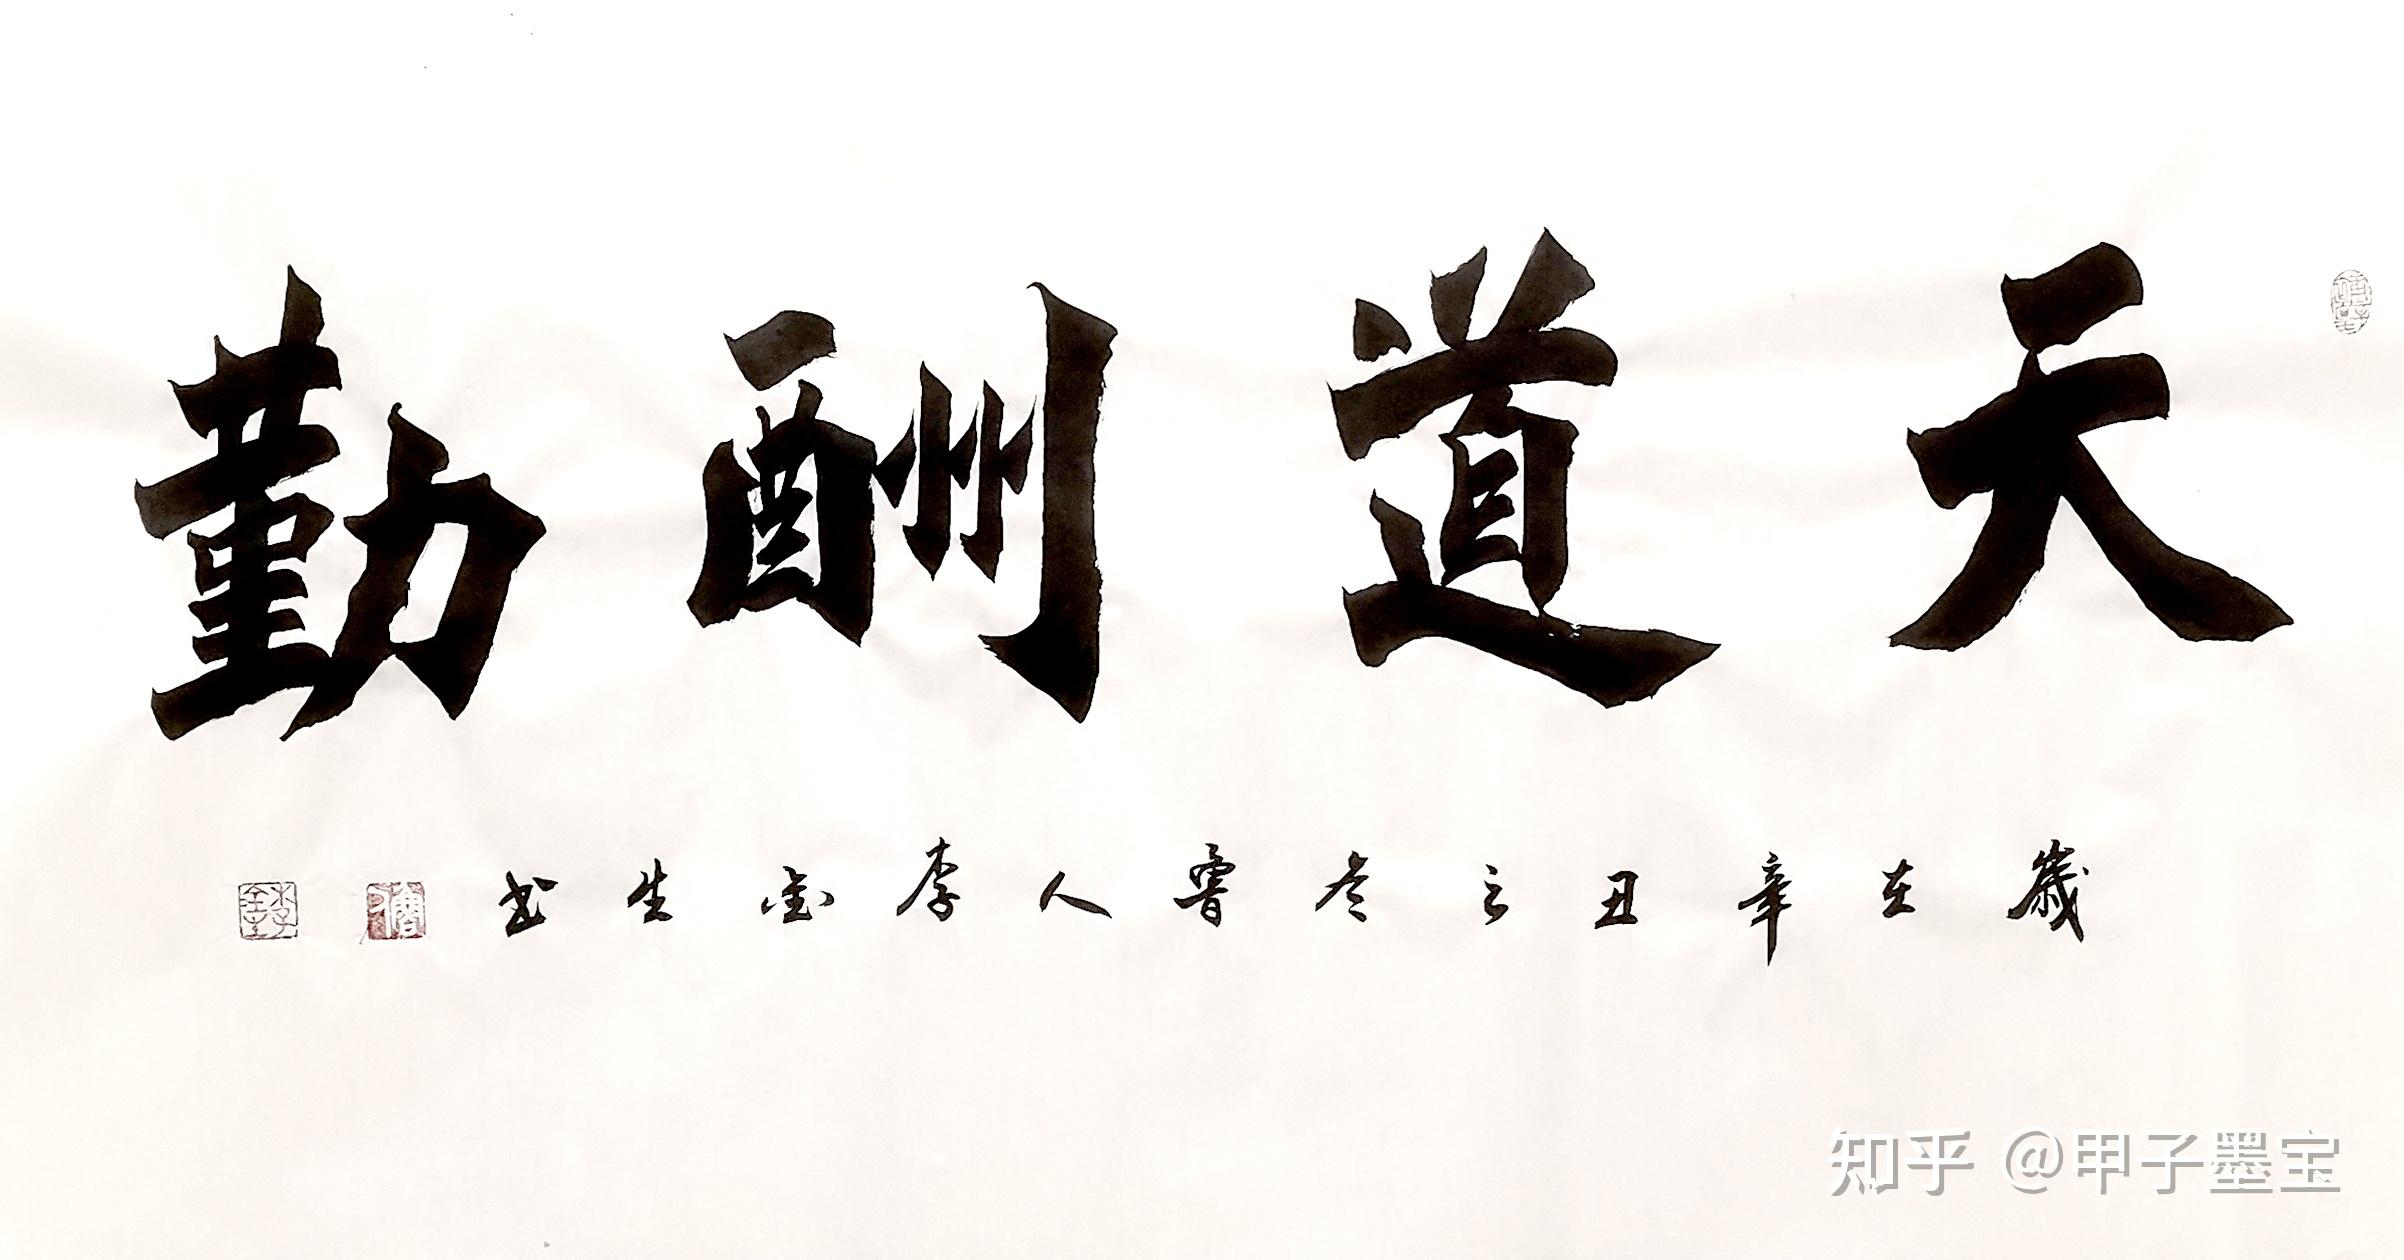 天道酬勤
歲在辛丑之冬魯人李金生书
知乎 @甲子墨宝